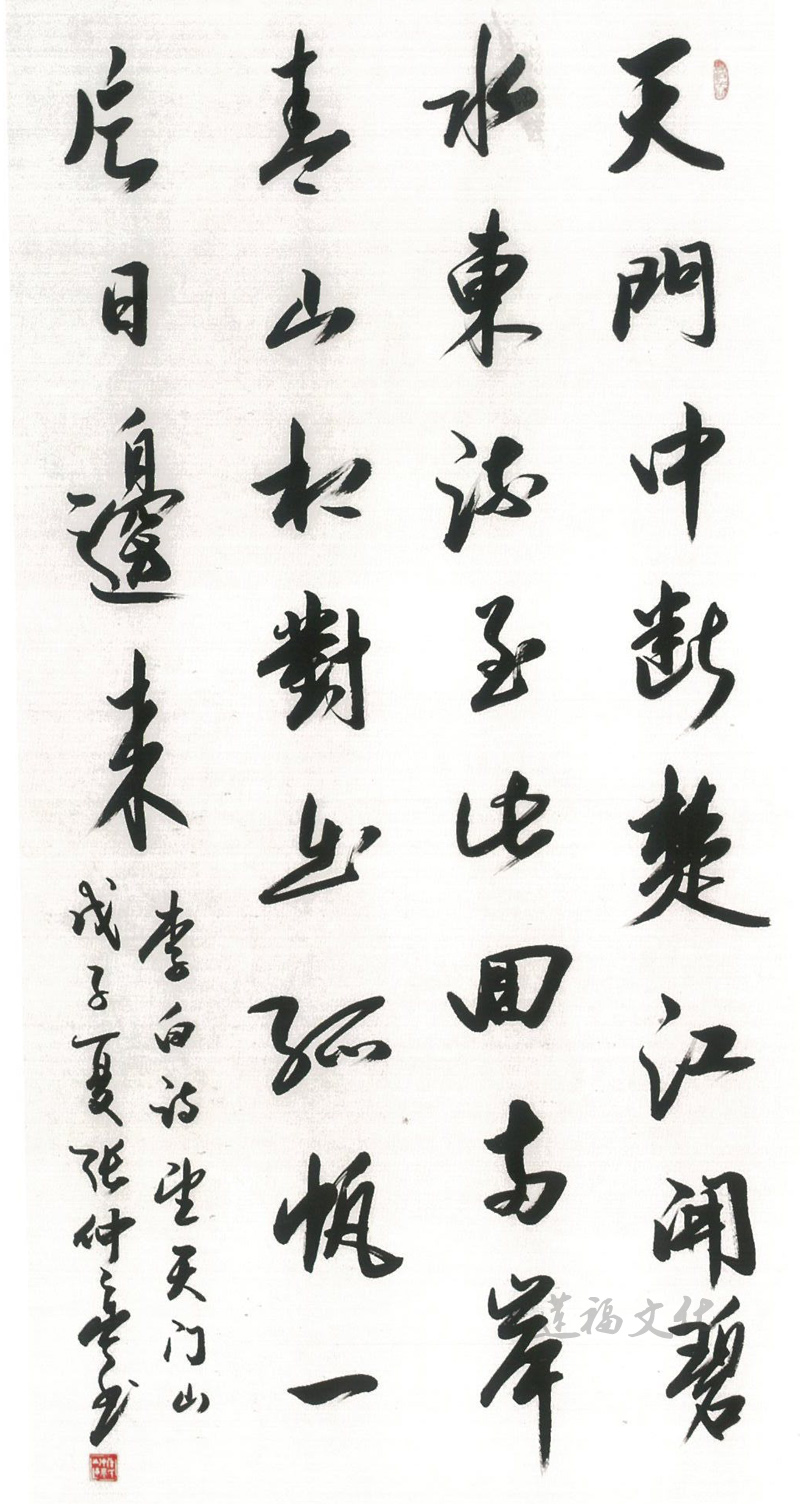 天門中断楚江開碧
水東流至此回两岸
青山相對出孤帆一
片日邊来
李白诗望天门山
戊子夏张仲亭书
莲福文化